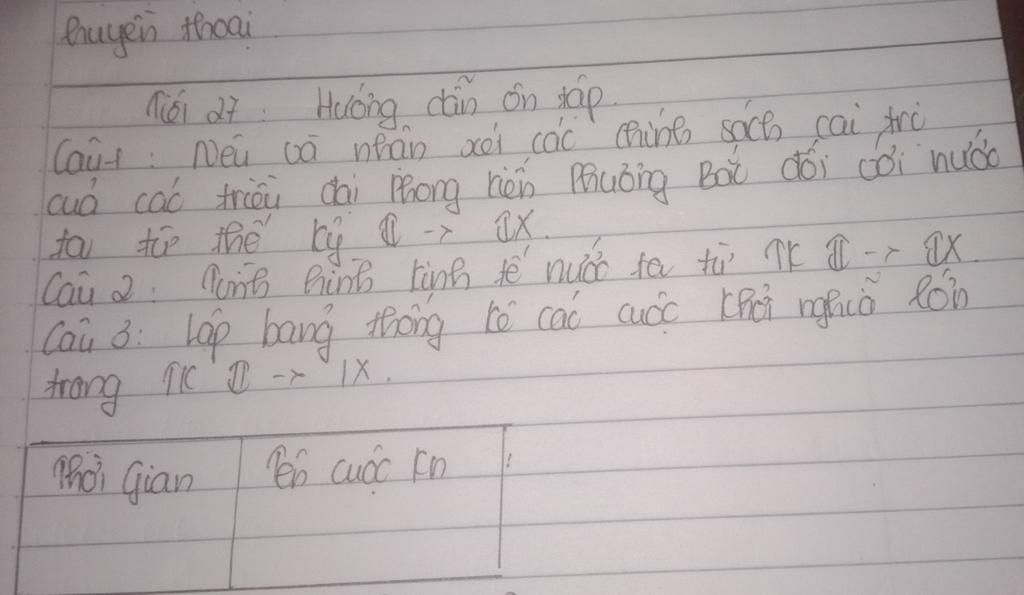 huyền thoại
Tiết 27: Hướng dẫn ôn tập.
Câu 1: Nêu và nhận xét các chính sách cai trị
của các triều đại Phong kiến Phương Bắc đối với nước
ta từ thế kỷ I -> IX.
Câu 2: Tình hình kinh tế nước ta từ TK I -> IX
Câu 3: Lập bảng thống kê các cuộc khởi nghĩa lớn
trong TK I -> IX.
Thời Gian Tên cuộc kn